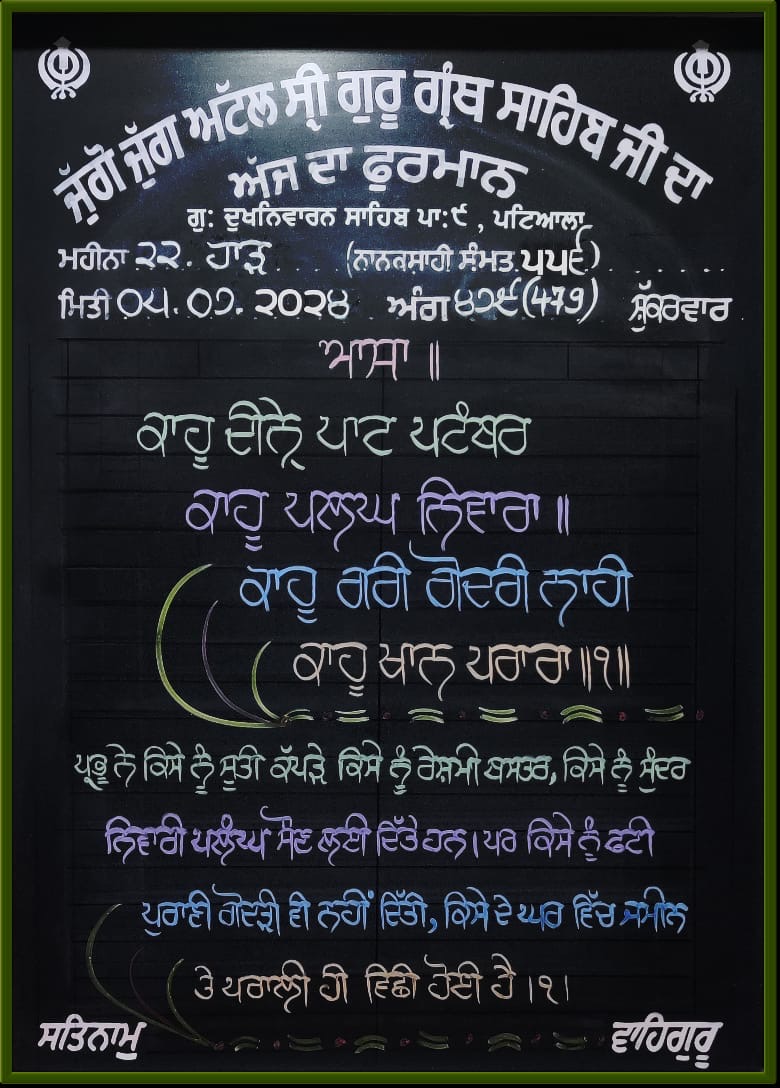 ਜੁੱਗੋ ਜੁੱਗ ਅੱਟਲ ਸ੍ਰੀ ਗੁਰੂ ਗ੍ਰੰਥ ਸਾਹਿਬ ਜੀ ਦਾ
ਅੱਜ ਦਾ ਫੁਰਮਾਨ
ਗੁ: ਦੁਖਨਿਵਾਰਨ ਸਾਹਿਬ ਪਾ:੯ , ਪਟਿਆਲਾ
ਮਹੀਨਾ ੨੨. ਹਾੜ (ਨਾਨਕਸਾਹੀ ਸੰਮਤ ੫੫੬)
ਮਿਤੀ ੦੫.੦੭.੨੦੨੪ ਅੰਗ ੪੭੯(479) ਸ਼ੁੱਕਰਵਾਰ
ਆਸਾ ॥
ਕਾਹੂ ਦੀਨ੍ਹੇ ਪਾਟ ਪਟੰਬਰ
ਕਾਹੂ ਪਲਘ ਨਿਵਾਰਾ ॥
ਕਾਹੂ ਗਰੀ ਗੋਦਰੀ ਨਾਹੀ
ਕਾਹੂ ਖਾਨ ਪਰਾਰਾ ॥੧॥
ਪ੍ਰਭੂ ਨੇ ਕਿਸੇ ਨੂੰ ਸੂਤੀ ਕੱਪੜੇ ਕਿਸੇ ਨੂੰ ਰੇਸ਼ਮੀ ਬਸਤਰ, ਕਿਸੇ ਨੂੰ ਸੁੰਦਰ
ਨਿਵਾਰੀ ਪਲੰਘ ਸੌਣ ਲਈ ਦਿੱਤੇ ਹਨ। ਪਰ ਕਿਸੇ ਨੂੰ ਫਟੀ
ਪੁਰਾਣੀ ਗੋਦੜੀ ਵੀ ਨਹੀਂ ਦਿੱਤੀ, ਕਿਸੇ ਦੇ ਘਰ ਵਿੱਚ ਜਮੀਨ
ਤੇ ਪਰਾਲੀ ਹੀ ਵਿਛੀ ਹੋਈ ਹੈ ।੧।
ਸਤਿਨਾਮੁ
ਵਾਹਿਗੁਰੂ